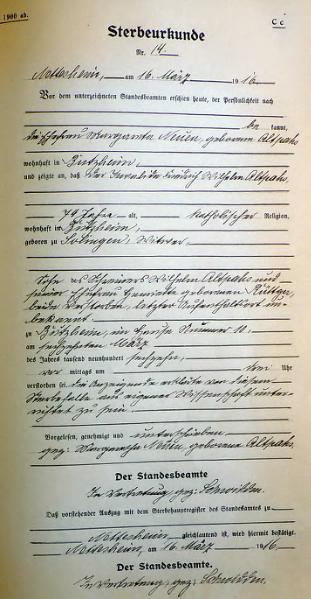 1900 ab.
C c
Sterbeurkunde
Nr. 14.
Nettersheim, am 16. März 1916
Vor dem unterzeichneten Standesbeamten erschien heute, der Persönlichkeit nach
be kannt,
die Ehefrau Margarete Neuen, geborene Altpaß
wohnhaft in Zützheim,
und zeigte an, daß der Invalide Friedrich Wilhelm Altpaß,
79 Jahre alt, katholischer Religion,
wohnhaft in Zützheim,
geboren zu Solingen, Witwer
Sohn des Schreiners Wilhelm Altpaß und
seiner Ehefrau Henriette geborenen
beide verstorben, letzter Aufenthaltsort un-
bekannt
zu Zützheim, im Hause Nummer 10,
am sechzehnten März
des Jahres tausend neunhundert sechzehn,
vor mittags um Uhr
verstorben sei. Die Anzeigende erklärte von diesem
Sterbefalle aus eigener Wissenschaft unter-
richtet zu sein.
Vorgelesen, genehmigt und unterschrieben
gez: Margarete Neuen, geborene Altpaß.
Der Standesbeamte
In Vertretung gez: Schwidden.
Daß vorstehender Auszug mit dem Sterbehauptregister des Standesamtes zu
Nettersheim, gleichlautend ist, wird hiermit bestätigt.
Nettersheim, am 16. März 1916.
Der Standesbeamte.
In Vertretung: gez: Schwidden.